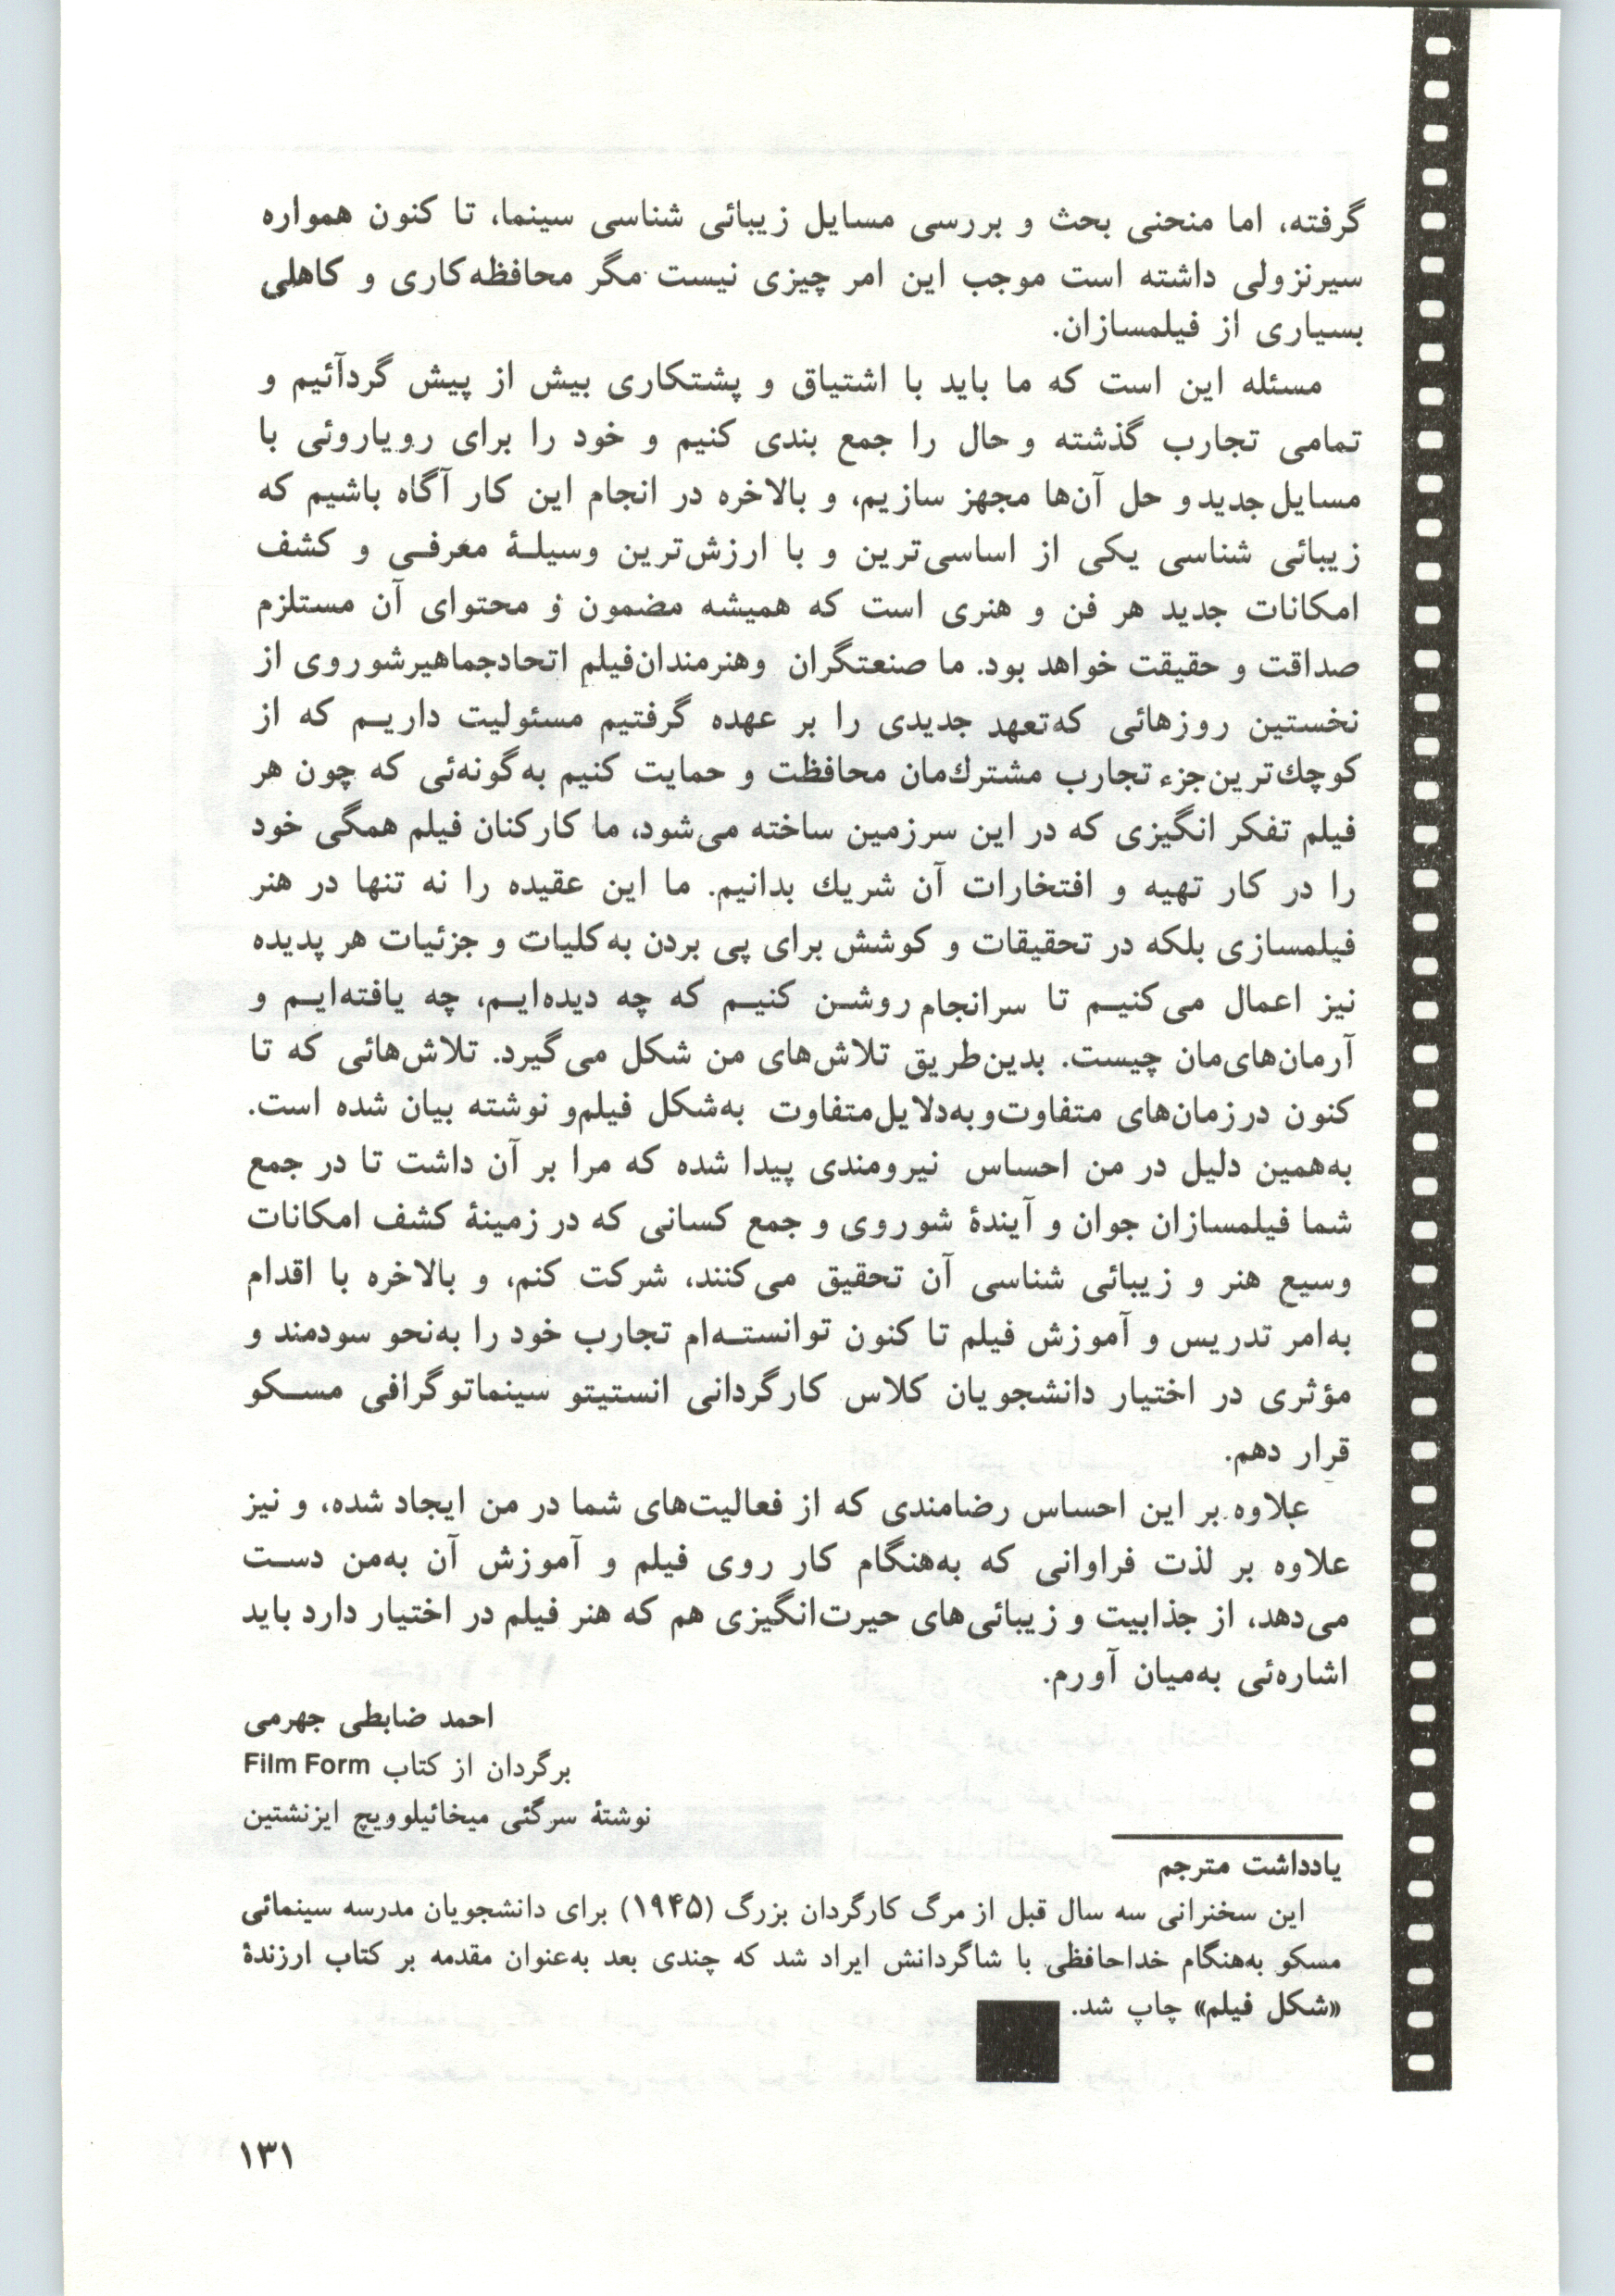 گرفته، اما منحنی بحث و بررسی مسایل زیبائی شناسی سینما، تا کنون همواره
سیرنزولی داشته است موجب این امر چیزی نیست مگر محافظه‌کاری و کاهلی
بسیاری از فیلمسازان.
مسئله این است که ما باید با اشتیاق و پشتکاری بیش از پیش گردآئیم و
تمامی تجارب گذشته و حال را جمع بندی کنیم و خود را برای رویاروئی با
مسایل جدید و حل آن‌ها مجهز سازیم، و بالاخره در انجام این کار آگاه باشیم که
زیبائی شناسی یکی از اساسی‌ترین و با ارزش‌ترین وسیلهٔ معرفی و کشف
امکانات جدید هر فن و هنری است که همیشه مضمون و محتوای آن مستلزم
صداقت و حقیقت خواهد بود. ما صنعتگران وهنرمندان‌فیلم اتحادجماهیرشوروی از
نخستین روزهائی که‌تعهد جدیدی را بر عهده گرفتیم مسئولیت داریم که از
کوچك‌ترین‌جزء تجارب مشترك‌مان محافظت و حمایت کنیم به‌گونه‌ئی که چون هر
فیلم تفکر انگیزی که در این سرزمین ساخته می‌شود، ما کارکنان فیلم همگی خود
را در کار تهیه و افتخارات آن شریك بدانیم. ما این عقیده را نه تنها در هنر
فیلمسازی بلکه در تحقیقات و کوشش برای پی بردن به‌کلیات و جزئیات هر پدیده
نیز اعمال می‌کنیم تا سرانجام روشن کنیم که چه دیده‌ایم، چه یافته‌ایم و
آرمان‌های‌مان چیست. بدین‌طریق تلاش‌های من شکل می‌گیرد. تلاش‌هائی که تا
کنون درزمان‌های متفاوت‌وبه‌دلایل‌متفاوت به‌شکل فیلم‌و نوشته بیان شده است.
به‌همین دلیل در من احساس نیرومندی پیدا شده که مرا بر آن داشت تا در جمع
شما فیلمسازان جوان و آیندهٔ شوروی و جمع کسانی که در زمینهٔ کشف امکانات
وسیع هنر و زیبائی شناسی آن تحقیق می‌کنند، شرکت کنم، و بالاخره با اقدام
به‌امر تدریس و آموزش فیلم تا کنون توانسته‌ام تجارب خود را به‌نحو سودمند و
مؤثری در اختیار دانشجویان کلاس کارگردانی انستیتو سینماتوگرافی مسکو
قرار دهم.
علاوه بر این احساس رضامندی که از فعالیت‌های شما در من ایجاد شده، و نیز
علاوه بر لذت فراوانی که به‌هنگام کار روی فیلم و آموزش آن به‌من دست
می‌دهد، از جذابیت و زیبائی‌های حیرت‌انگیزی هم که هنر فیلم در اختیار دارد باید
اشاره‌ئی به‌میان آورم.
احمد ضابطی جهرمی
برگردان از کتاب Film Form
نوشتهٔ سرگئی میخائیلوویچ ایزنشتین
یادداشت مترجم
این سخنرانی سه سال قبل از مرگ کارگردان بزرگ (۱۹۴۵) برای دانشجویان مدرسه سینمائی
مسکو به‌هنگام خداحافظی با شاگردانش ایراد شد که چندی بعد به‌عنوان مقدمه بر کتاب ارزندهٔ
«شکل فیلم» چاپ شد.
۱۳۱